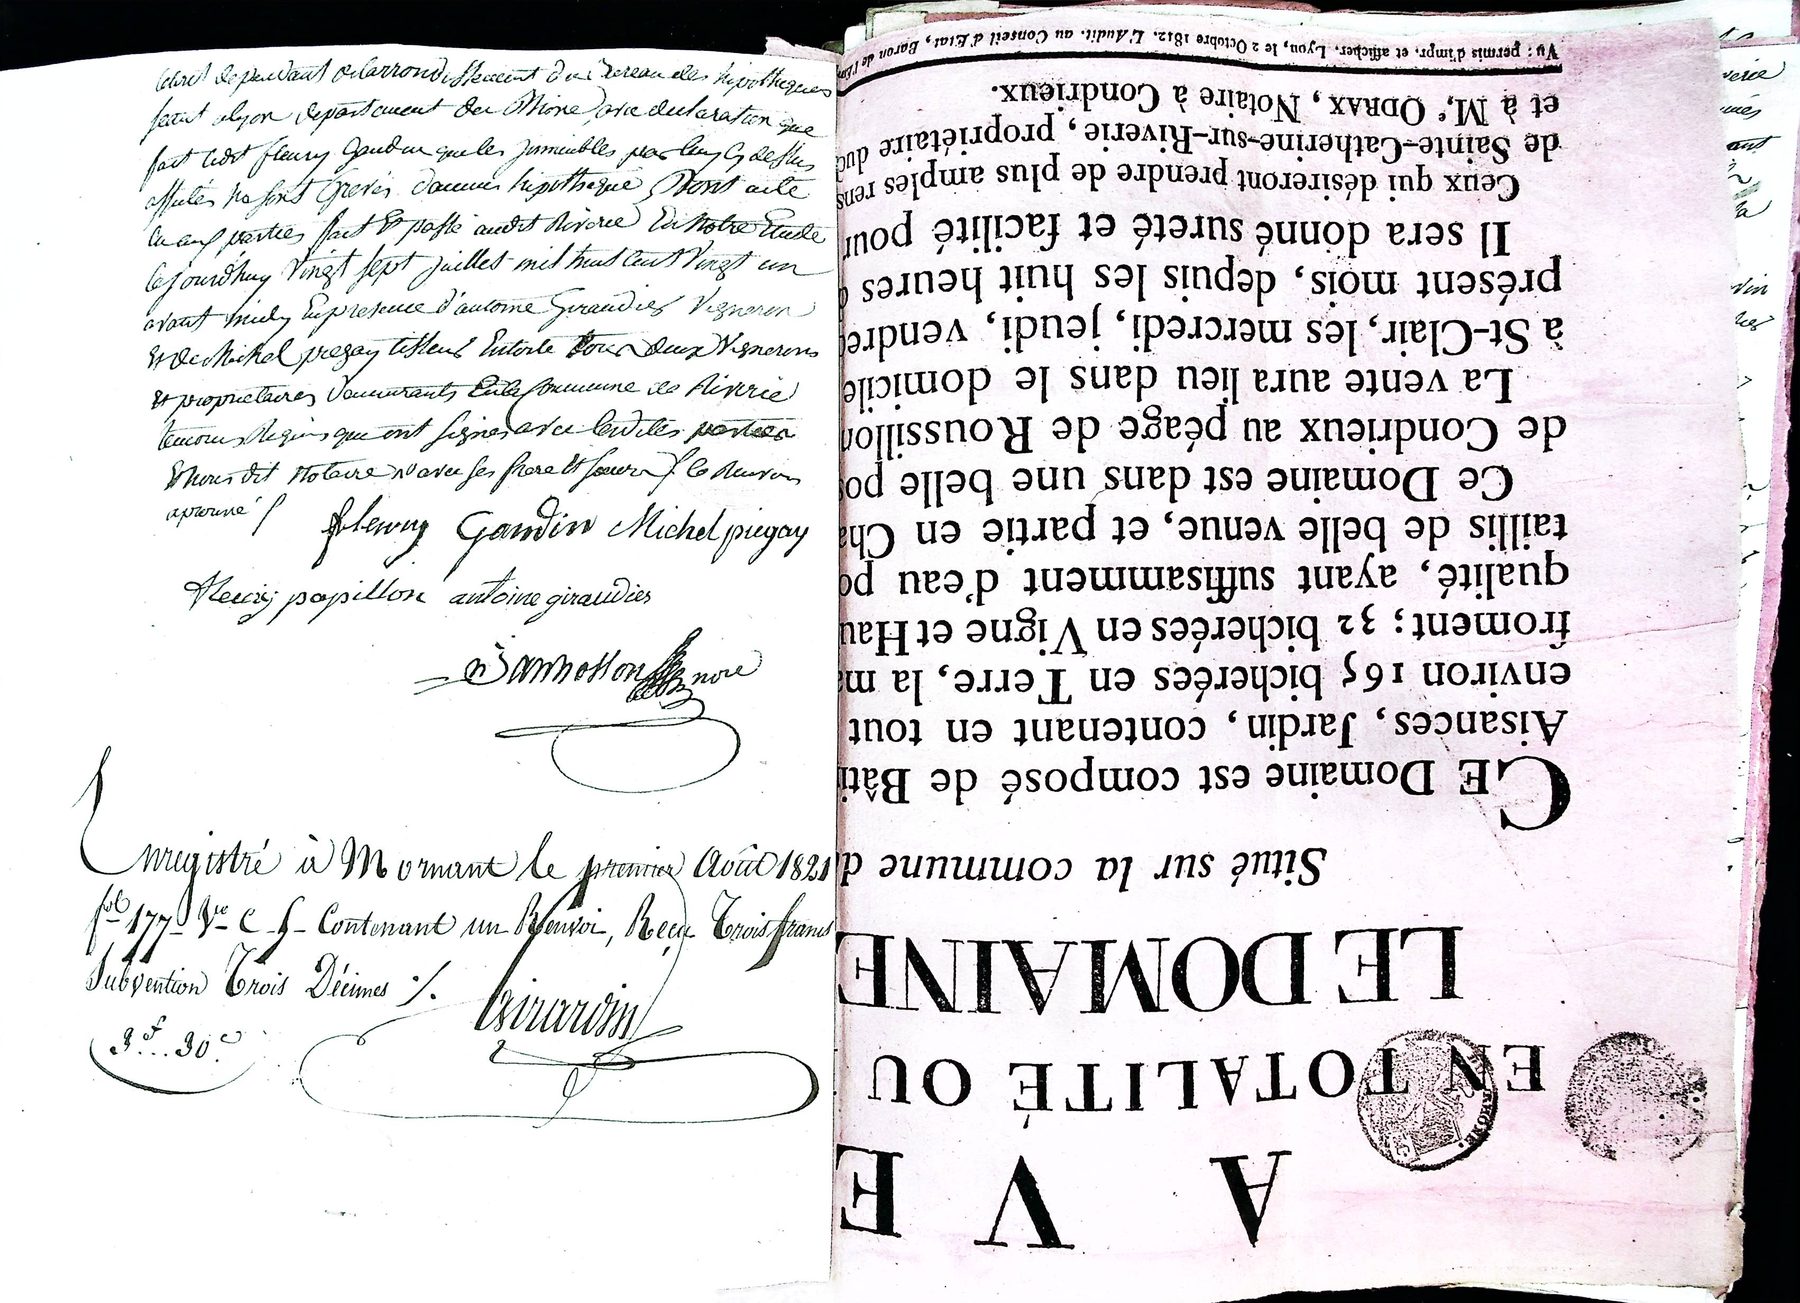 dependant de larrondissement du Bureau des hipotheques
seant a lyon departement du Rhône, avec declaration que
fait ledit fleury Gaudin que les immeubles par luy cy dessus
affectés ne sont grevés d'aucune hipotheque, Dont acte
lu aux parties fait Et passé audit Riverie En notre Etude
Cejourdhuy vingt sept juillet mil huit cent vingt un
avant midy En presence d'antoine Giraudier Vigneron
Et de Michel piegay tisseur En toile tous deux Vignerons
Et proprietaires demeurants En la Commune de Riverie
temoins Requis qui ont signés avec lesdites parties
Et nous dit notaire avec ses frere Et soeur / le Renvoy
aprouvé /
fleury Gaudin Michel piegay
fleury papillon antoine giraudier
nore
Enregistré à Mornant le premier Août 1821
fol 177 Vre C. 5 Contenant un Renvoi, Reçu Trois francs
Subvention Trois Décimes /.
3f...30c
Girardin
A VE
EN TOTALITÉ OU
LE DOMAINE
Situé sur la commune d
CE Domaine est composé de Bâti
Aisances, Jardin, contenant en tout
environ 165 bicherées en Terre, la ma
froment; 32 bicherées en Vigne et Hau
qualité, ayant suffisamment d'eau po
taillis de belle venue, et partie en Cha
Ce Domaine est dans une belle pos
de Condrieux au péage de Roussillon
La vente aura lieu dans le domicile
à St-Clair, les mercredi, jeudi, vendre
présent mois, depuis les huit heures
Il sera donné sureté et facilité pour
Ceux qui désireront prendre de plus amples rens
de Sainte-Catherine-sur-Riverie, propriétaire dud
et à Me. ODRAX, Notaire à Condrieux.
Vu: permis d'impr. et afficher. Lyon, le 2 Octobre 1812. L'Audit. au Conseil d'Etat, Baron de l'Em